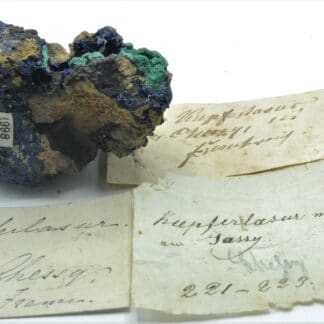 1998
Kupferlasur,
Chessy
Frankreich
lasur.
Chessy,
France.
Kupferlasur
Jassy.
Chessy
221-223.